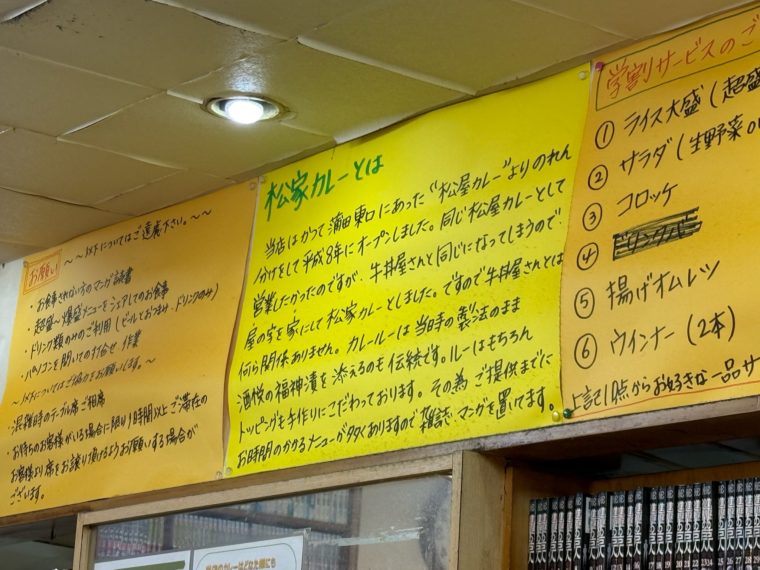 お願い
～～以下についてはご遠慮下さい。～～
・お食事されない方のマンガ読書
・超盛～爆盛メニューをシェアしてのお食事
・ドリンク類のみのご利用(ビールとおつまみ、ドリンクのみ)
・パソコンを開いての打合せ、作業
～以下についてはご協力をお願いします。～
・混雑時のテーブル席ご相席
・お待ちのお客様がいる場合に限り1時間以上ご滞在の
お客様より席をお譲り頂けるようお願いする場合が
ございます。
松家カレーとは
当店はかつて蒲田東口にあった“松屋カレー”よりのれん
分けをして平成8年にオープンしました。同じ松屋カレーとして
営業したかったのですが、牛丼屋さんと同じになってしまうので、
屋の字を家にして松家カレーとしました。ですので牛丼屋さんとは
何ら関係ありません。カレールーは当時の製法のまま
酒悦の福神漬を添えるのも伝統です。ルーはもちろん
トッピングも手作りにこだわっております。その為ご提供までに
お時間のかかるメニューが多くありますので雑誌、マンガを置いてます。
学割サービスのご
① ライス大盛(超盛
② サラダ(生野菜or
③ コロッケ
④ ドリンクバー
⑤ 揚げオムレツ
⑥ ウインナー(2本)
上記1点からお好きな一品サ